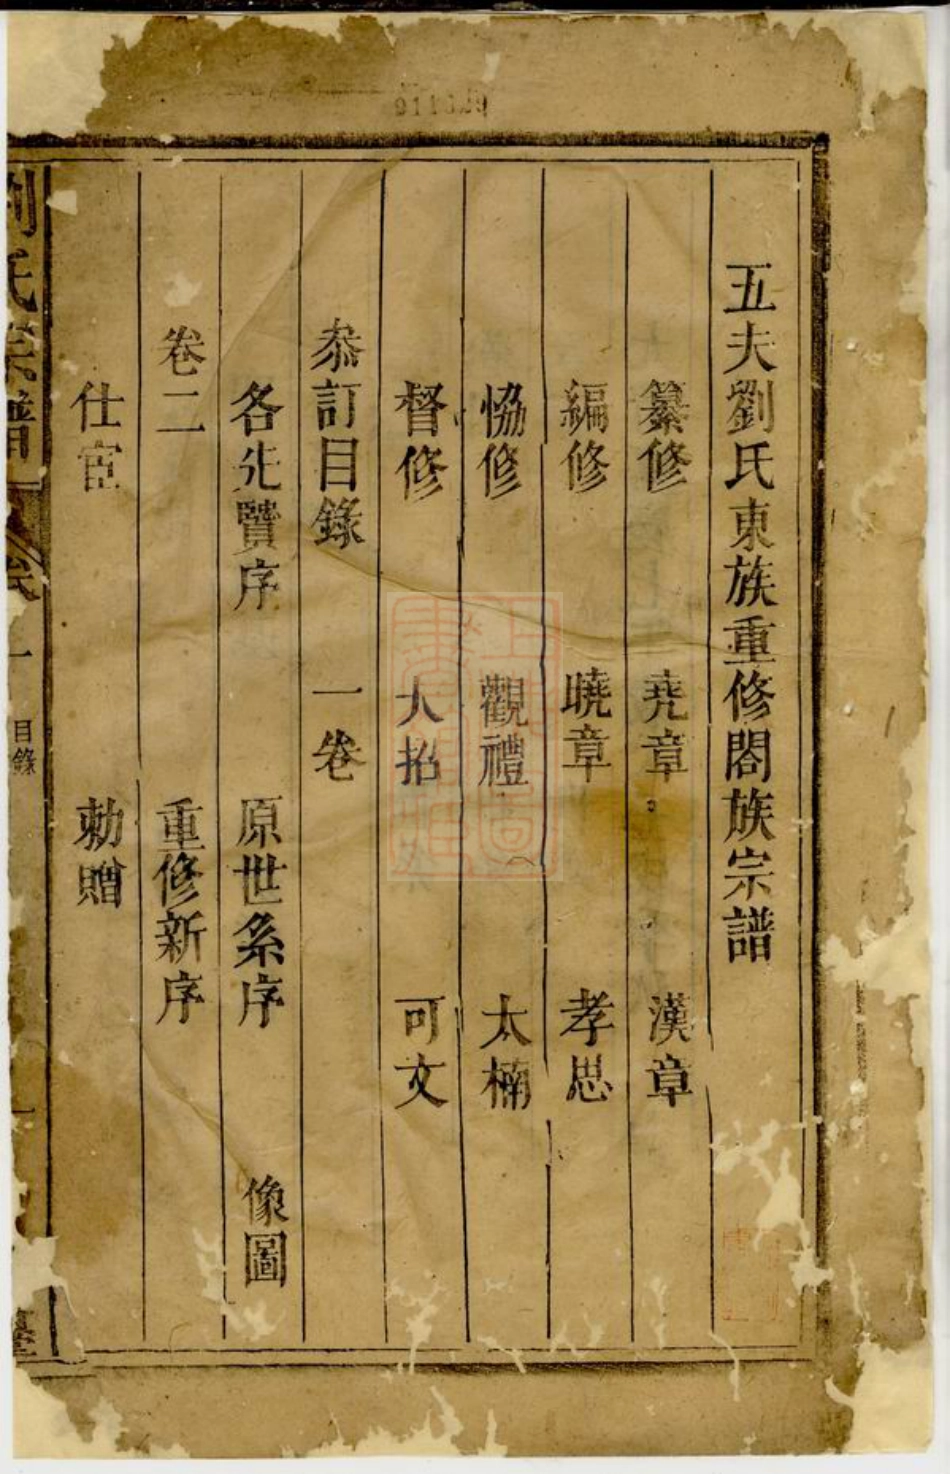 五夫劉氏東族重修閤族宗譜
纂修 尭章 漢章
編修 曉章 孝思
恊修 觀禮 太楠
督修 大招 可文
叅訂目錄 一卷
各先賢序 原世系序 像圖
卷二 重修新序
仕宦 勅贈
劉氏宗譜 卷一 目錄 一
911119